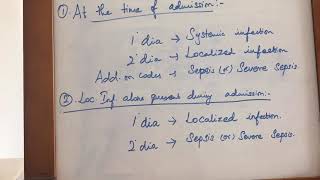 ① At the time of admission:-
1° dia → Systemic infection
2° dia → Localized infection
Add. on codes → Sepsis (or) Severe Sepsis
② Loc Inf. alone present during admission:-
1° dia → Localized infection.
2° dia → Sepsis (or) Severe Sepsis.